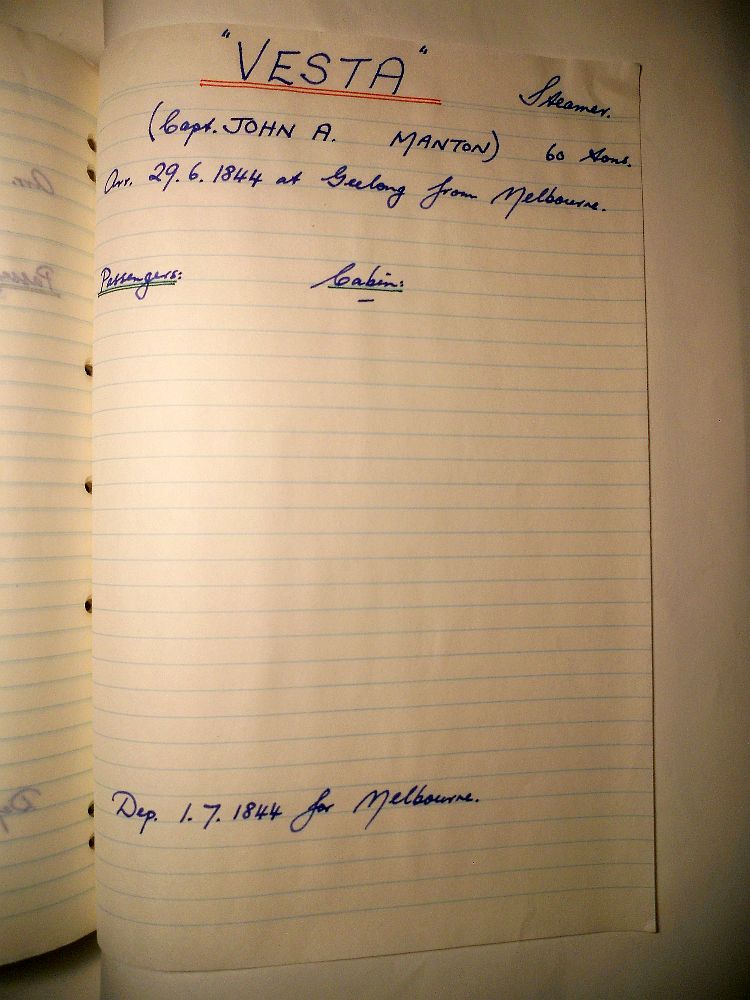 "VESTA"
Steamer.
(Capt. JOHN A. MANTON) 60 tons.
Arr. 29.6.1844 at Geelong from Melbourne.
Passengers: Cabin:
–
Dep. 1.7.1844 for Melbourne.